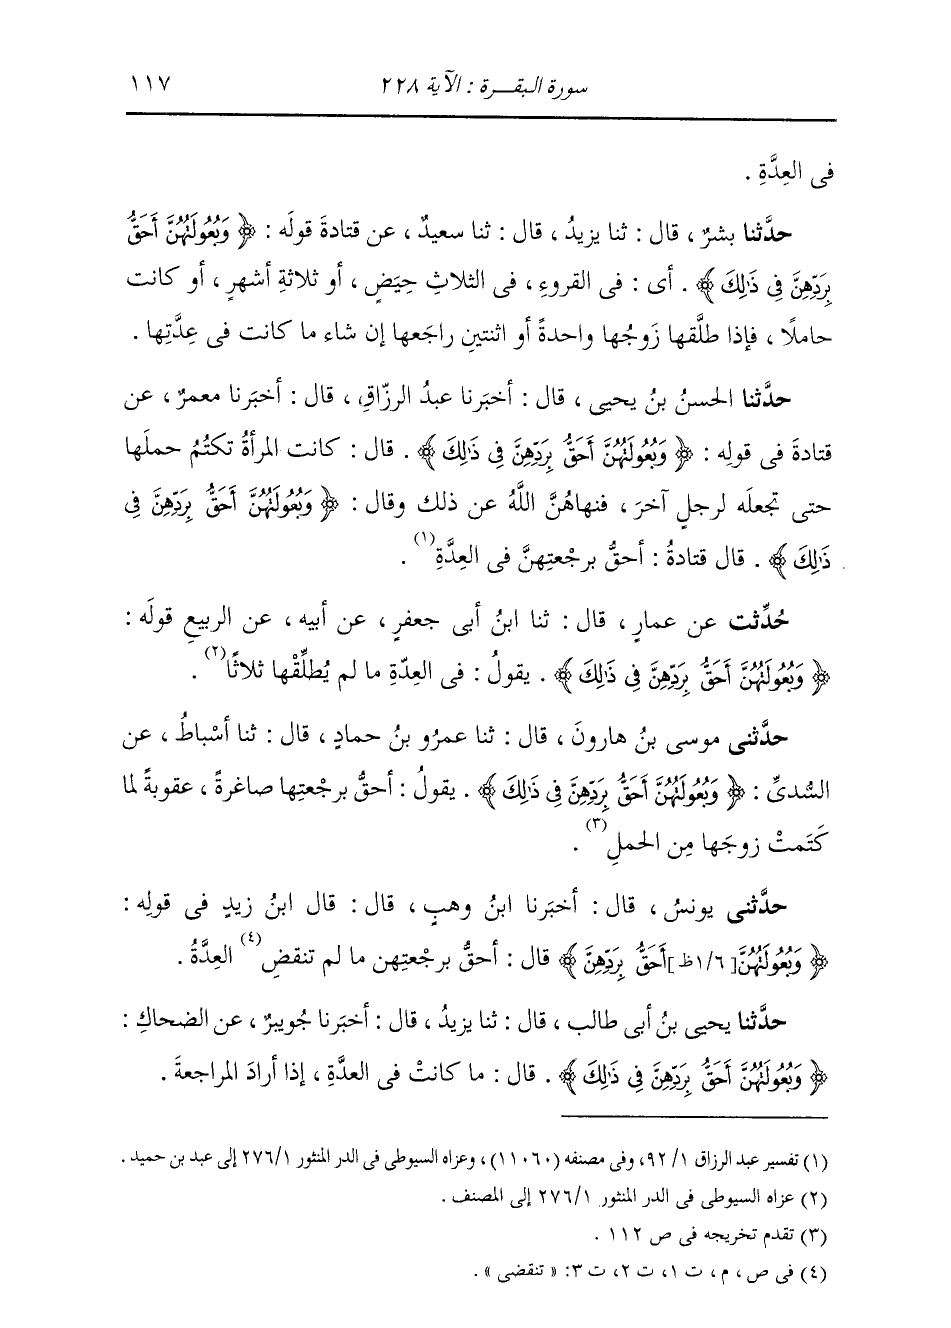 سورة البقرة : الآية ٢٢٨ ١١٧
فى العِدَّةِ .
حدَّثنا بشرٌ ، قال : ثنا يزيدُ ، قال : ثنا سعيدٌ ، عن قتادةَ قولَه : ﴿ وَبُعُولَتُهُنَّ أَحَقُّ
بِرَدِّهِنَّ فِي ذَٰلِكَ ﴾ . أى : فى القروءِ ، فى الثلاثِ حِيَضٍ ، أو ثلاثةِ أشهرٍ ، أو كانت
حاملًا ، فإذا طلَّقها زَوجُها واحدةً أو اثنتينِ راجَعها إن شاء ما كانت فى عِدَّتِها .
حدَّثنا الحسنُ بنُ يحيى ، قال : أخبَرنا عبدُ الرزّاقِ ، قال : أخبَرنا معمرٌ ، عن
قتادةَ فى قولِه : ﴿ وَبُعُولَتُهُنَّ أَحَقُّ بِرَدِّهِنَّ فِي ذَٰلِكَ ﴾ . قال : كانت المرأةُ تكتُمُ حملَها
حتى تجعلَه لرجلٍ آخرَ ، فنهاهُنَّ اللَّهُ عن ذلك وقال : ﴿ وَبُعُولَتُهُنَّ أَحَقُّ بِرَدِّهِنَّ فِي
ذَٰلِكَ ﴾ . قال قتادةُ : أحقُّ برجْعتِهنَّ فى العِدَّةِ(١) .
حُدِّثت عن عمارٍ ، قال : ثنا ابنُ أبى جعفرٍ ، عن أبيه ، عن الربيعِ قولَه :
﴿ وَبُعُولَتُهُنَّ أَحَقُّ بِرَدِّهِنَّ فِي ذَٰلِكَ ﴾ . يقولُ : فى العِدّةِ ما لم يُطلِّقْها ثلاثًا(٢) .
حدَّثنى موسى بنُ هارونَ ، قال : ثنا عمرُو بنُ حمادٍ ، قال : ثنا أسْباطُ ، عن
السُّدىِّ : ﴿ وَبُعُولَتُهُنَّ أَحَقُّ بِرَدِّهِنَّ فِي ذَٰلِكَ ﴾ . يقولُ : أحقُّ برجْعتِها صاغرةً ، عقوبةً لما
كَتَمتْ زوجَها مِن الحملِ(٣) .
حدَّثنى يونسُ ، قال : أخبَرنا ابنُ وهبٍ ، قال : قال ابنُ زيدٍ فى قولِه :
﴿ وَبُعُولَتُهُنَّ[ ١/٦ظ ]أَحَقُّ بِرَدِّهِنَّ ﴾ قال : أحقُّ برجْعتِهن ما لم تنقضِ(٤) العِدَّةُ .
حدَّثنا يحيى بنُ أبى طالب ، قال : ثنا يزيدُ ، قال : أخبَرنا جُويبرٌ ، عن الضحاكِ :
﴿ وَبُعُولَتُهُنَّ أَحَقُّ بِرَدِّهِنَّ فِي ذَٰلِكَ ﴾ . قال : ما كانتْ فى العدَّةِ ، إذا أرادَ المراجعةَ .
(١) تفسير عبد الرزاق ١/ ٩٢، وفى مصنفه (١١٠٦٠) ، وعزاه السيوطى فى الدر المنثور ٢٧٦/١ إلى عبد بن حميد .
(٢) عزاه السيوطى فى الدر المنثور ٢٧٦/١ إلى المصنف .
(٣) تقدم تخريجه فى ص ١١٢ .
(٤) فى ص ، م ، ت ١، ت ٢، ت ٣: « تنقضى » .